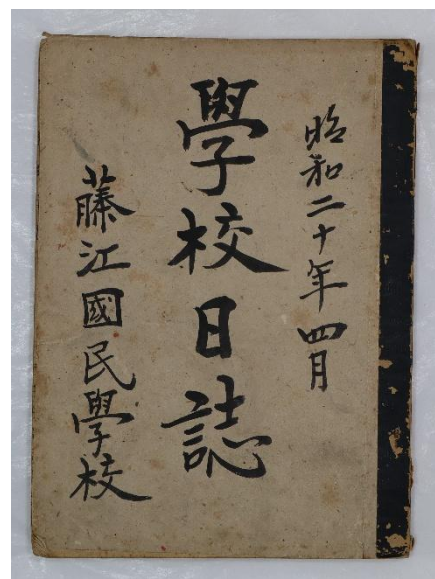 昭和二十年四月
學校日誌
藤江國民學校